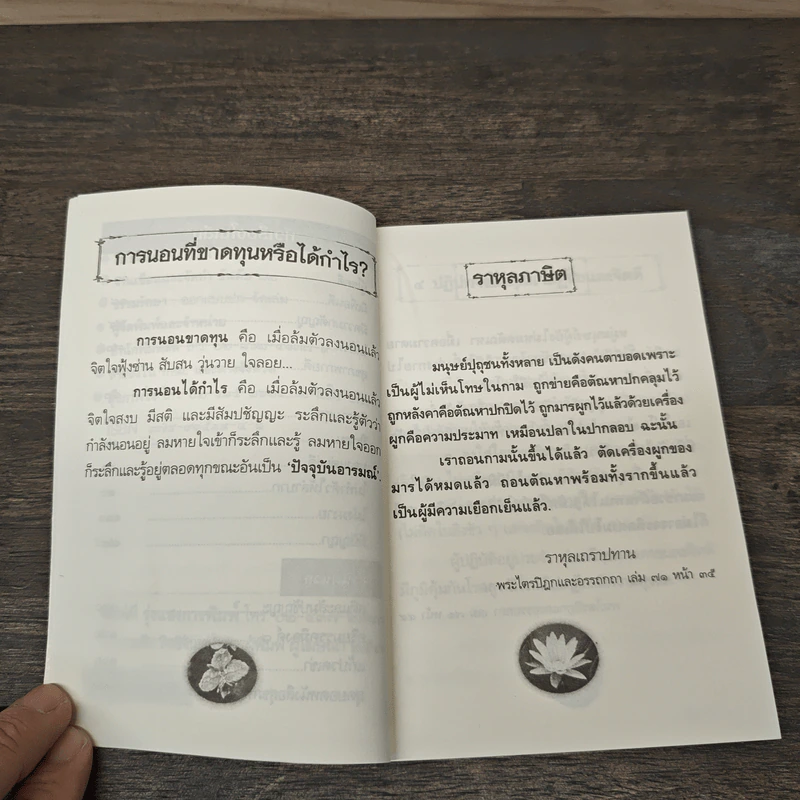 การนอนที่ขาดทุนหรือได้กำไร?
การนอนขาดทุน คือ เมื่อล้มตัวลงนอนแล้ว
จิตใจฟุ้งซ่าน สับสน วุ่นวาย ใจลอย...
การนอนได้กำไร คือ เมื่อล้มตัวลงนอนแล้ว
จิตใจสงบ มีสติ และมีสัมปชัญญะ ระลึกและรู้ตัวว่า
กำลังนอนอยู่ ลมหายใจเข้าก็ระลึกและรู้ ลมหายใจออก
ก็ระลึกและรู้อยู่ตลอดทุกขณะอันเป็น 'ปัจจุบันอารมณ์'.
ราหุลภาษิต
มนุษย์ปุถุชนทั้งหลาย เป็นดังคนตาบอดเพราะ
เป็นผู้ไม่เห็นโทษในกาม ถูกข่ายคือตัณหาปกคลุมไว้
ถูกหลังคาคือตัณหาปกปิดไว้ ถูกมารผูกไว้แล้วด้วยเครื่อง
ผูกคือความประมาท เหมือนปลาในปากลอบ ฉะนั้น
เราถอนกามนั้นขึ้นได้แล้ว ตัดเครื่องผูกของ
มารได้หมดแล้ว ถอนตัณหาพร้อมทั้งรากขึ้นแล้ว
เป็นผู้มีความเยือกเย็นแล้ว.
ราหุลเถราปทาน
พระไตรปิฎกและอรรถกถา เล่ม ๗๑ หน้า ๓๕